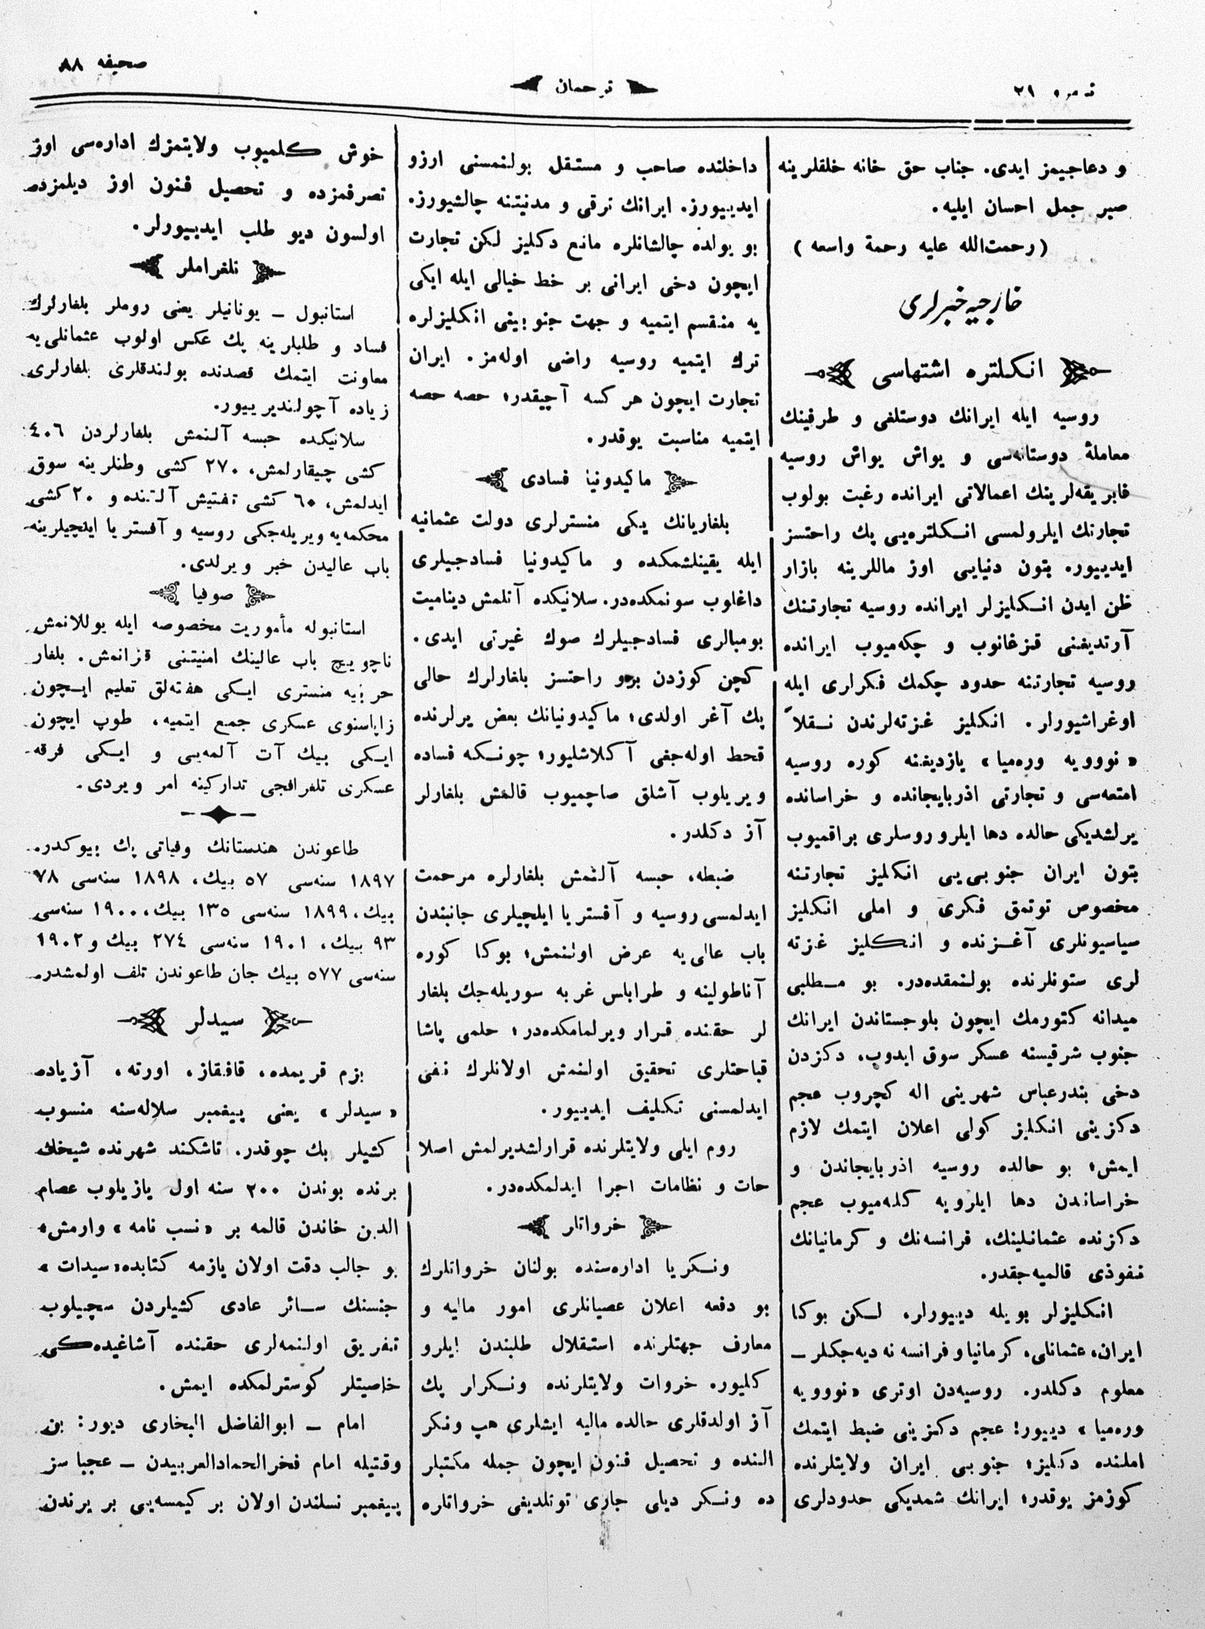 نمره ٢١
ترجمان
صحیفه ٨٨
و دعاجیمز ایدی. جناب حق خانه خلقلرینه
صبر جمل احسان ایلیه.
(رحمت‌الله علیه رحمة واسعه)
خارجیه خبرلری
انكلتره اشتهاسی
روسیه ایله ایرانك دوستلغی و طرفینك
معاملهٔ دوستانه‌سی و یواش یواش روسیه
فابریقه‌لرینك اعمالاتی ایرانده رغبت بولوب
تجارتك ایلرولمسی انكلتره‌یی پك راحتسز
ایدییور. بتون دنیایی اوز ماللرینه بازار
ظن ایدن انكلیزلر ایرانده روسیه تجارتنك
آرتدیغنی قزغانوب و چكه‌میوب ایرانده
روسیه تجارتنه حدود چكمك فكراری ایله
اوغراشیورلر. انكلیز غزته‌لرندن نقلاً
«نوویه وره‌میا» یازدیغنه كوره روسیه
امتعه‌سی و تجارتی اذربایجانده و خراسانده
یرلشدیكی حالده دها ایلرو روسلری براقمیوب
بتون ایران جنوبی‌یی انكلیز تجارتنه
مخصوص توتمق فكری و املی انكلیز
سیاسیونلری آغزنده و انكلیز غزته
لری ستونلرنده بولنمقده‌در. بو مطلبی
میدانه كتورمك ایچون بلوجستاندن ایرانك
جنوب شرقیسنه عسكر سوق ایدوب، دكزدن
دخی بندرعباس شهرینی اله كچروب عجم
دكزینی انكلیز كولی اعلان ایتمك لازم
ایمش؛ بو حالده روسیه اذربایجاندن و
خراساندن دها ایلرویه كله‌میوب عجم
دكزنده عثمانلینك، فرانسه‌نك و كرمانیانك
نفوذی قالمیه‌جقدر.
انكلیزلر بویله دییورلر. لكن بوكا
ایران، عثمانلی، كرمانیا و فرانسه نه دیه‌جكلر ــ
معلوم دكلدر. روسیه‌دن اوتری «نوویه
وره‌میا» دییور: عجم دكزینی ضبط ایتمك
املنده دكلیز؛ جنوبی ایران ولایتلرنده
كوزمز یوقدر؛ ایرانك شمدیكی حدودلری
داخلنده صاحب و مستقل بولنمسنی ارزو
ایدییورز. ایرانك ترقی و مدنیتنه چالشیورز.
بو یولده چالشانلره مانع دكلیز لكن تجارت
ایچون دخی ایرانی بر خط خیالی ایله ایكی
یه منقسم ایتمیه و جهت جنوبینی انكلیزلره
ترك ایتمیه روسیه راضی اوله‌مز. ایران
تجارت ایچون هر كسه آچیقدر؛ حصه حصه
ایتمیه مناسبت یوقدر.
ماكیدونیا فسادی
بلغاریانك یكی منسترلری دولت عثمانیه
ایله یقینلشمكده و ماكیدونیا فسادجیلری
داغلوب سونمكده‌در. سلانیكده آتلمش دینامیت
بومبالری فسادجیلرك صوك غیرتی ایدی.
كچن كوزدن برو راحتسز بلغارلرك حالی
پك آغر اولدی؛ ماكیدونیانك بعض یرلرنده
قحط اوله‌جغی آكلاشلیور؛ چونكه فساده
ویریلوب آشلق صاچمیوب قالمش بلغارلر
آز دكلدر.
ضبطه، حبسه آلنمش بلغارلره مرحمت
ایدلمسی روسیه و آفستریا ایلچیلری جانبندن
باب عالی‌یه عرض اولنمش؛ بوكا كوره
آناطولینه و طرابلس غربه سوریله‌جك بلغار
لر حقنده قرار ویرلمامكده‌در؛ حلمی پاشا
قباحتلری تحقیق اولنمش اولانلرك نفی
ایدلمسنی تكلیف ایدییور.
روم ایلی ولایتلرنده قرارلشدیرلمش اصلا
حات و نظامات اجرا ایدلمكده‌در.
خرواتلر
ونكریا اداره‌سنده بولنان خرواتلرك
بو دفعه اعلان عصیانلری امور مالیه و
معارف جهتلرنده استقلال طلبندن ایلرو
كلیور. خروات ولایتلرنده ونكرار پك
آز اولدقلری حالده مالیه ایشلری هپ ونكر
النده و تحصیل فنون ایچون جمله مكتبلر
ده ونكر دیلی جاری توتلدیغی خرواتلره
خوش كلمیوب ولایتمزك اداره‌سی اوز
تصرفمزده و تحصیل فنون اوز دیلمزده
اولسون دیو طلب ایدییورلر.
تلغراملر
استانبول ــ یونانیلر یعنی روملر بلغارلرك
فساد و طلبلرینه پك عكس اولوب عثمانلی‌یه
معاونت ایتمك قصدنده بولندقلری بلغارلری
زیاده آچولندیرییور.
سلانیكده حبسه آلنمش بلغارلردن ٤٠٦
كشی چیقارلمش، ٢٧٠ كشی وطنلرینه سوق
ایدلمش، ٦٠ كشی تفتیش آلتنده و ٢٠ كشی
محكمه‌یه ویریله‌جكی روسیه و آفستریا ایلچیلرینه
باب عالیدن خبر ویرلدی.
صوفیا
استانبوله مأموریت مخصوصه ایله یوللانمش
ناچوویچ باب عالینك امنیتنی قزانمش. بلغار
حربیه منستری ایكی هفته‌لق تعلیم ایچون
زاپاسنوی عسكری جمع ایتمیه، طوپ ایچون
ایكی بیك آت آلمه‌یی و ایكی فرقه
عسكری تلغرافجی تداركینه امر ویردی.
طاعوندن هندستانك وفیاتی پك بیوكدر.
١٨٩٧ سنه‌سی ٥٧ بیك، ١٨٩٨ سنه‌سی ٧٨
بیك، ١٨٩٩ سنه‌سی ١٣٥ بیك، ١٩٠٠ سنه‌سی
٩٣ بیك، ١٩٠١ سنه‌سی ٢٧٤ بیك و ١٩٠٢
سنه‌سی ٥٧٧ بیك جان طاعوندن تلف اولمشدر.
سیدلر
بزم قریمده، قافقاز، اورته، آزیاده
«سیدلر» یعنی پیغمبر سلاله‌سنه منسوب
كشیلر پك چوقدر. تاشكند شهرنده شیخك
برنده بوندن ٢٠٠ سنه اول یازیلوب عصام
الدین خاندن قالمه بر «نسب نامه» وارمش؛
بو جالب دقت اولان یازمه كتابده «سیدات»
جنسنك سائر عادی كشیلردن سچیلوب
تفریق اولنمه‌لری حقنده آشاغیده‌كی
خاصیتلر كوسترلمكده ایمش.
امام ــ ابوالفاضل البخاری دیور: بن
وقتیله امام فخرالحمادالعربیدن ــ عجبا سز
پیغمبر نسلندن اولان بر كیمسه‌یی بر یرندن